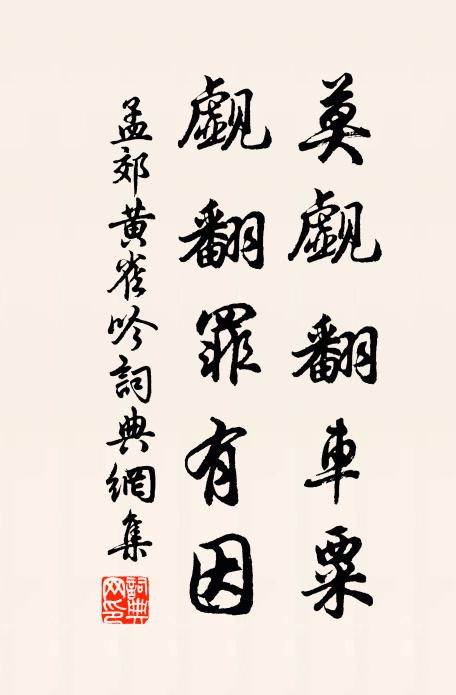 莫覷翻車粟
覷翻罪有因
孟郊黄雀吟詞典網集
詞典網印